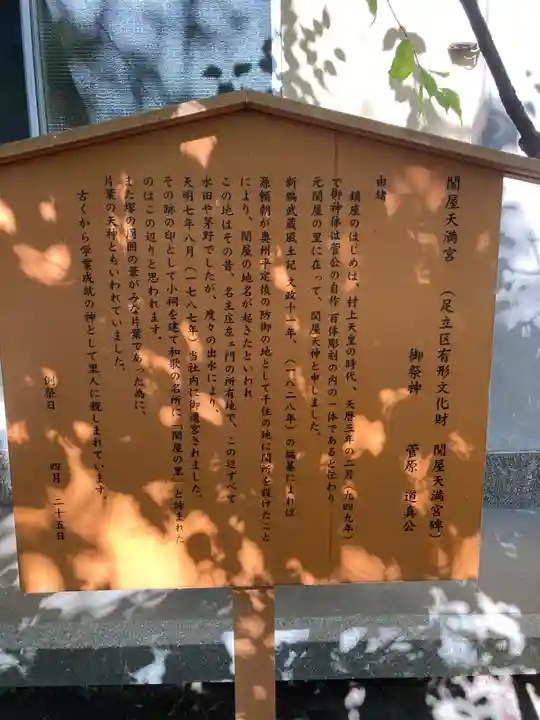 関屋天満宮 (足立区有形文化財 関屋天満宮碑)
御祭神 菅原 道真公
由緒
鎮座のはじめは、村上天皇の時代、天暦三年の二月(九四九年)
で御神体は菅公の自作 百体彫刻の内の一体であると伝わり
元関屋の里に在って、関屋天神と申しました。
新編武蔵風土記 文政十一年、(一八二八年)の編纂によれば
源頼朝が奥州平定後の防御の地として千住の地に関所を設けたこと
により、関屋の地名が起きたといわれ
この地はその昔、名主庄左ェ門の所有地で、この辺すべて
水田や茅野でしたが、度々の出水により、
天明七年八月(一七八七年)当社内に御遷宮されました。
その跡の印として小祠を建て和歌の名所に「関屋の里」と詠まれた
のはこの辺りと思われます。
また塚の周囲の葦がみな片葉であった為に、
片葉の天神ともいわれていました。
古くから学業成就の神として里人に親しまれています。
例祭日 四月 二十五日